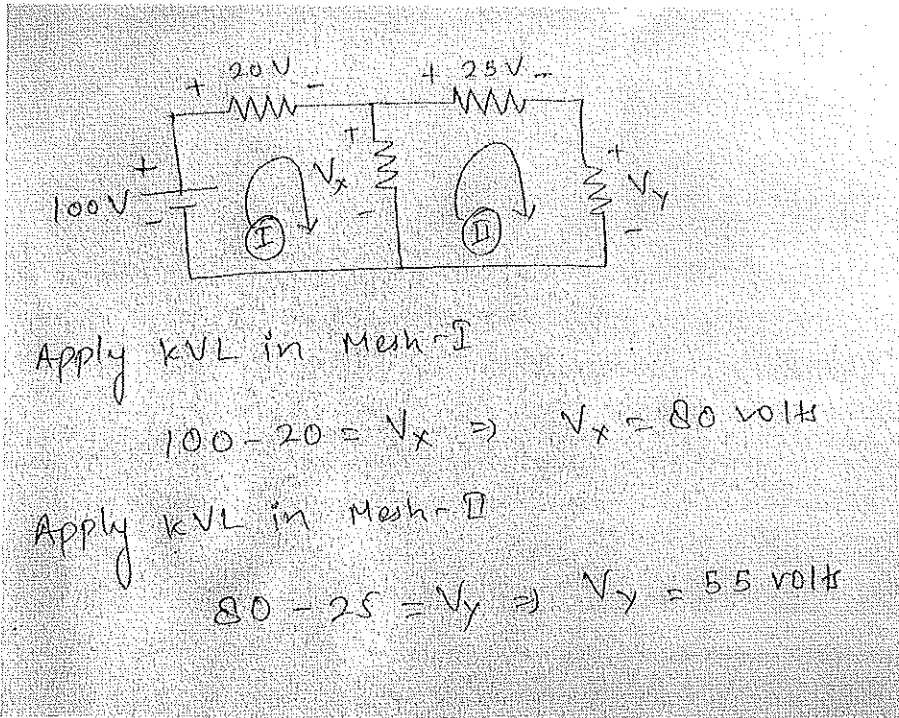 + 20V - + 25V -
+ 100V - + Vx - + Vy -
I II
Apply KVL in Mesh-I
100 - 20 = Vx => Vx = 80 volts
Apply KVL in Mesh-II
80 - 25 = Vy => Vy = 55 volts